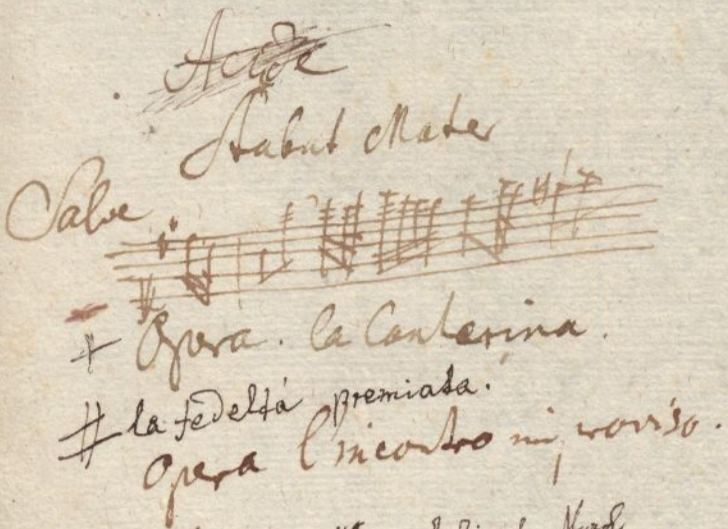 Acide
Stabut Mater
Salve
+ Opera. la Canterina.
# la fedeltà premiata.
Opera l'incontro improviso.